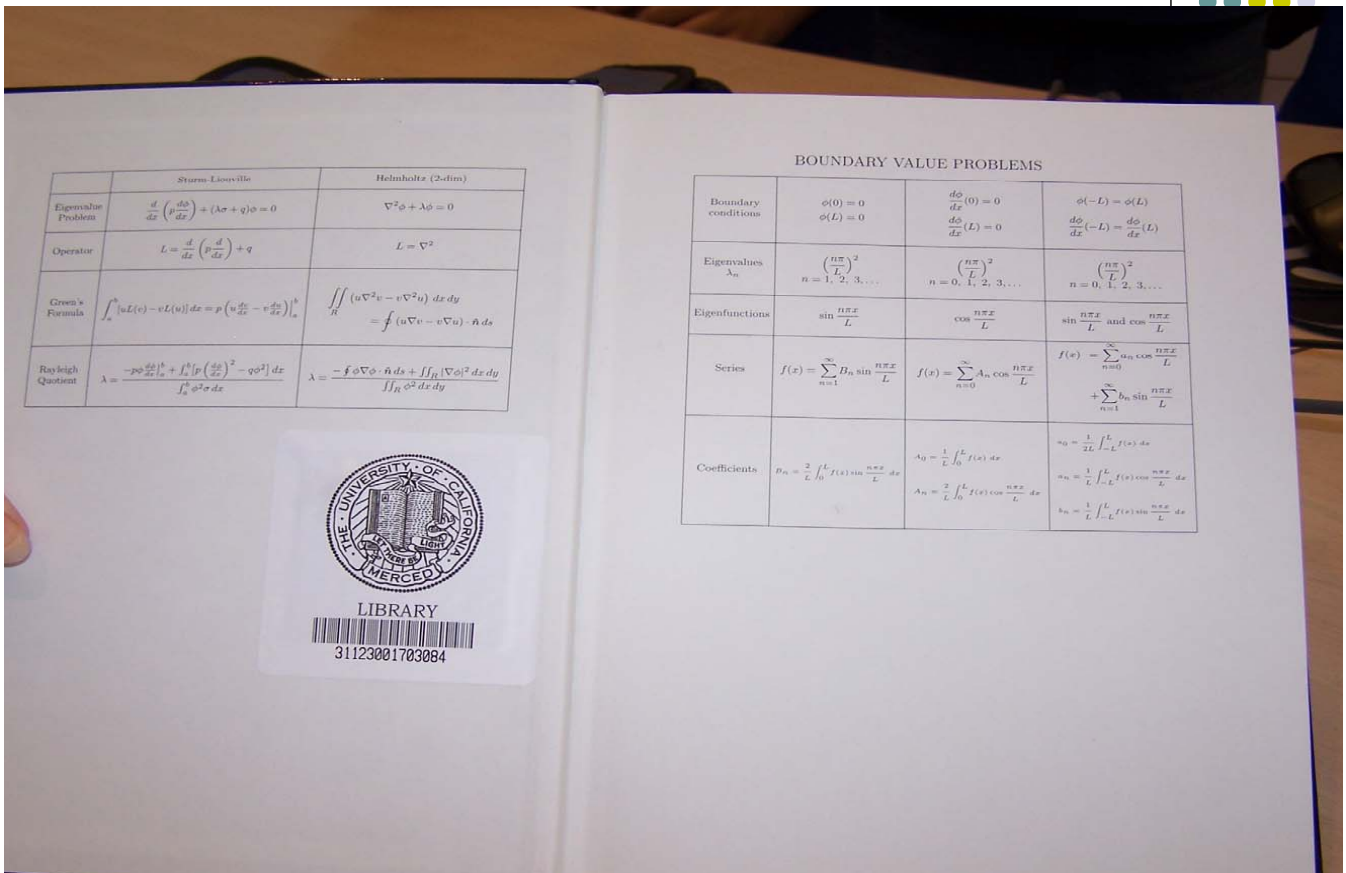 Sturm-Liouville Helmholtz (2-dim)
Eigenvalue Problem $\frac{d}{dx}\left(p\frac{d\phi}{dx}\right) + (\lambda\sigma + q)\phi = 0$ $\nabla^2\phi + \lambda\phi = 0$
Operator $L = \frac{d}{dx}\left(p\frac{d}{dx}\right) + q$ $L = \nabla^2$
Green's Formula $\int_a^b [uL(v) - vL(u)]\,dx = p\left(u\frac{dv}{dx} - v\frac{du}{dx}\right)\Big|_a^b$ $\iint_R (u\nabla^2 v - v\nabla^2 u)\,dx\,dy$
$= \oint (u\nabla v - v\nabla u)\cdot \hat{n}\,ds$
Rayleigh Quotient $\lambda = \frac{-p\phi\frac{d\phi}{dx}\big|_a^b + \int_a^b [p\left(\frac{d\phi}{dx}\right)^2 - q\phi^2]\,dx}{\int_a^b \phi^2\sigma\,dx}$ $\lambda = \frac{-\oint \phi\nabla\phi\cdot\hat{n}\,ds + \iint_R |\nabla\phi|^2\,dx\,dy}{\iint_R \phi^2\,dx\,dy}$
THE · UNIVERSITY · OF · CALIFORNIA ·
LET THERE BE LIGHT
MERCED
LIBRARY
31123001703084
BOUNDARY VALUE PROBLEMS
Boundary conditions $\phi(0) = 0$ $\frac{d\phi}{dx}(0) = 0$ $\phi(-L) = \phi(L)$
$\phi(L) = 0$ $\frac{d\phi}{dx}(L) = 0$ $\frac{d\phi}{dx}(-L) = \frac{d\phi}{dx}(L)$
Eigenvalues $\lambda_n$ $\left(\frac{n\pi}{L}\right)^2$ $\left(\frac{n\pi}{L}\right)^2$ $\left(\frac{n\pi}{L}\right)^2$
$n = 1, 2, 3, \ldots$ $n = 0, 1, 2, 3, \ldots$ $n = 0, 1, 2, 3, \ldots$
Eigenfunctions $\sin\frac{n\pi x}{L}$ $\cos\frac{n\pi x}{L}$ $\sin\frac{n\pi x}{L}$ and $\cos\frac{n\pi x}{L}$
Series $f(x) = \sum_{n=1}^{\infty} B_n \sin\frac{n\pi x}{L}$ $f(x) = \sum_{n=0}^{\infty} A_n \cos\frac{n\pi x}{L}$ $f(x) = \sum_{n=0}^{\infty} a_n \cos\frac{n\pi x}{L}$
$+ \sum_{n=1}^{\infty} b_n \sin\frac{n\pi x}{L}$
Coefficients $B_n = \frac{2}{L}\int_0^L f(x)\sin\frac{n\pi x}{L}\,dx$ $A_0 = \frac{1}{L}\int_0^L f(x)\,dx$ $a_0 = \frac{1}{2L}\int_{-L}^L f(x)\,dx$
$A_n = \frac{2}{L}\int_0^L f(x)\cos\frac{n\pi x}{L}\,dx$ $a_n = \frac{1}{L}\int_{-L}^L f(x)\cos\frac{n\pi x}{L}\,dx$
$b_n = \frac{1}{L}\int_{-L}^L f(x)\sin\frac{n\pi x}{L}\,dx$